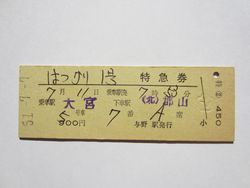 はつかり 1号 特急券
7月11日 乗車駅発 7時53分
乗車駅 大宮 下車駅 (北)郡山
5号車 7番 A席
900円 与野駅発行
小
450